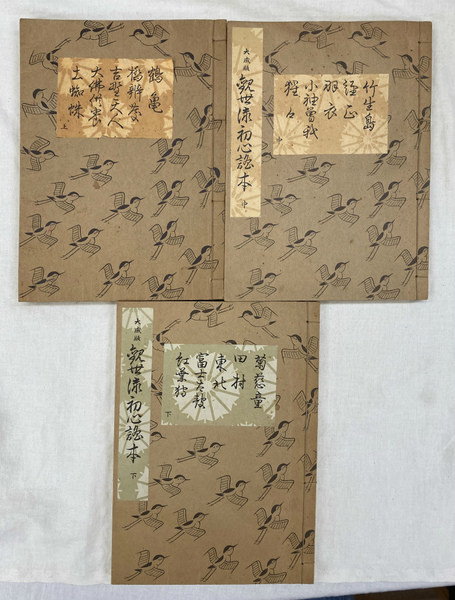 鶴亀
橋辨慶
吉野天人
大佛供養
土蜘蛛
上
大成版
觀世流初心謠本
中
竹生島
經正
羽衣
小袖曽我
猩々
大成版
觀世流初心謠本
下
菊慈童
田村
東北
富士太鼓
紅葉狩
下